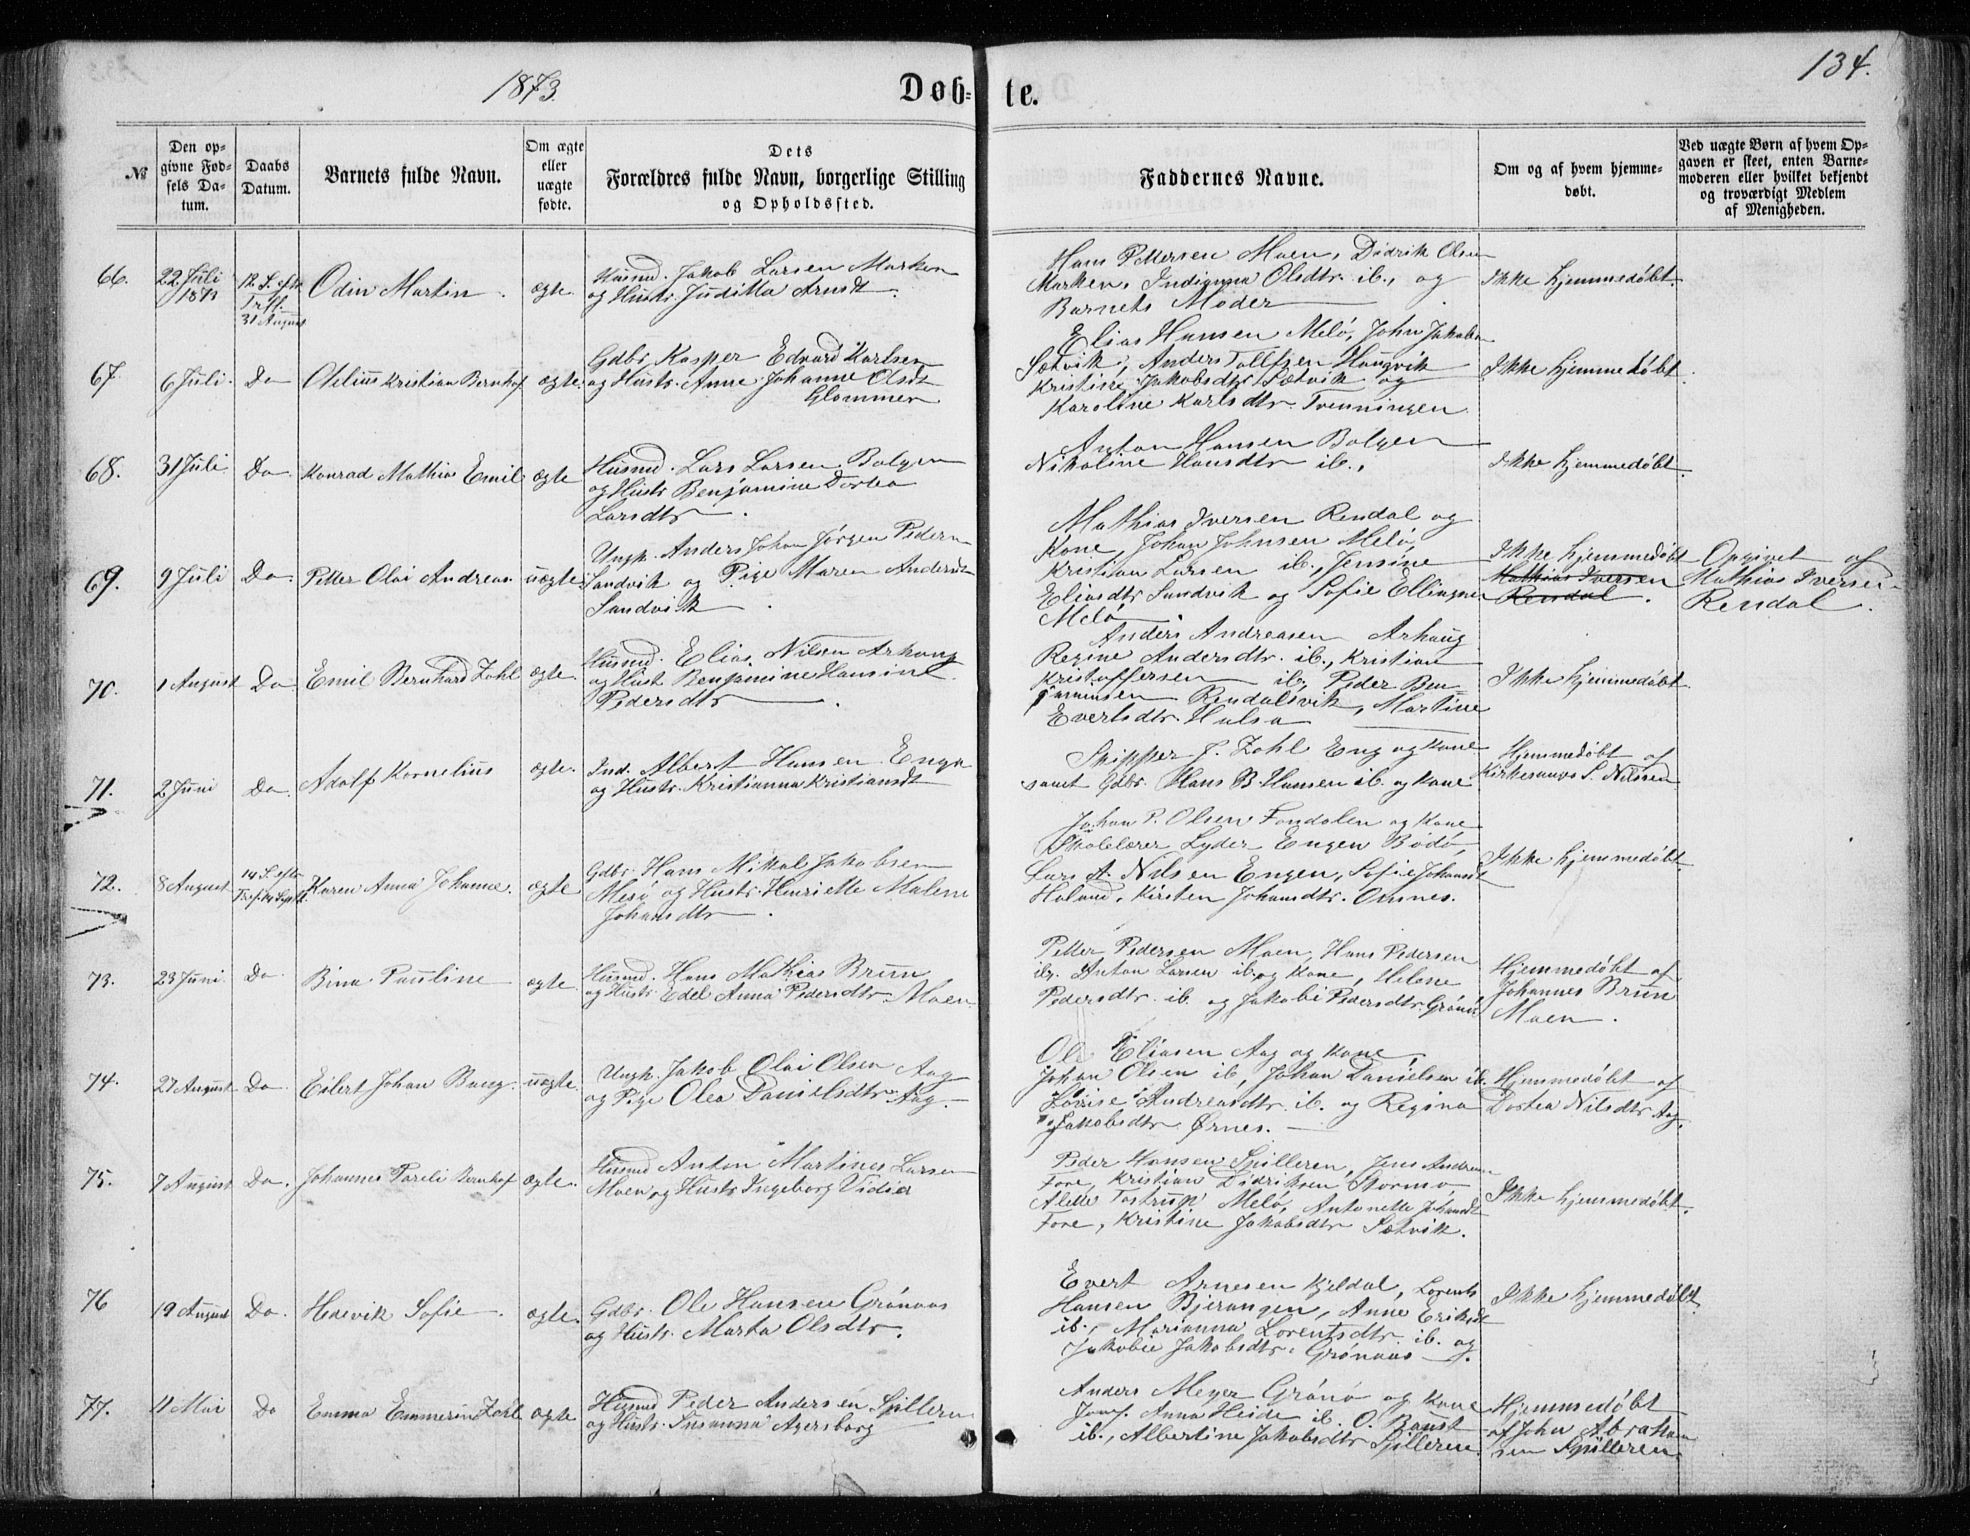 1873.
Døb-
te.
134.
№
Den op-
givne Fød-
sels Da-
tum.
Daabs
Datum.
Barnets fulde Navn.
Om ægte
eller
uægte
fødte.
Dets
Forældres fulde Navn, borgerlige Stilling
og Opholdssted.
Faddernes Navne.
Om og af hvem hjemme-
døbt.
Ved uægte Børn af hvem Op-
gaven er skeet, enten Barne-
moderen eller hvilket bekjendt
og troværdigt Medlem
af Menigheden.
66.
22 Juli
1873
12 S. eft.
Tref.
31 August
Odin Martin.
ægte.
Husmd. Jakob Larsen Marken
og Hustr. Juditta Arnsdt.
Hans Pettersen Moen, Didrik Olsen
Marken, Indianna Olsdtr. ib., og
Barnets Moder
Ikke hjemmedøbt.
67.
6 Juli.
Do
Otelius Kristian Bernhof
ægte.
Gdbr. Kasper Edvard Karlsen
og Hustr. Anne Johanne Olsdt
Glommen
Elias Hansen Melø, John Jakobsen
Sætvik, Anders Tollefsen Haugvik
Kristine Jakobsdtr. Sætvik og
Karoline Karlsdtr. Tvenningen.
Ikke hjemmedøbt.
68.
31 Juli
Do
Konrad Mathias Emil
ægte
Husmd. Lars Larsen Bolgen
og Hustr. Benjamine Dortea
Larsdtr.
Anton Hansen Bolgen
Nikoline Hansdtr ib.,
Ikke hjemmedøbt.
69.
9 Juli
Do.
Petter Olai Andreas.
uægte
Ungk. Anders Johan Jørgen Pedersen
Sandvik og Pige Maren Andersdt
Sandvik.
Mathias Iversen Rendal og
Kone, Johan Johnsen Melø,
Kristian Larsen ib., Jensine
Eliasdtr. Sandvik og Sofie Ellingsen
Melø
Ikke hjemmedøbt
Mathias Iversen
Rendal.
Opgivet af
Mathias Iversen
Rendal.
70.
1 August
Do
Emil Bernhard Zahl
ægte.
Husmd. Elias Nilsen Arhaug
og Hust. Benjamine Hansine
Pedersdtr.
Anders Andreasen Arhaug
Regine Andersdtr. ib., Kristian
Kristoffersen ib., Peder Ben-
jaminsen Rendalsvik, Martine
Evertsdtr. Halsa
Ikke hjemmedøbt.
71.
2 Juni
Do.
Adolf Kornelius
ægte.
Ind. Albert Hansen Enga
og Hustr. Kristianna Kristiansdt
Skipper J. Zahl Eng og Kone
samt Gdbr. Hans B. Hansen ib. og Kone
Hjemmedøbt af
Kirkesanger S. Nilsen
72.
8 August
14 S. eft.
Tref. 14 Septb.
Karen Anna Johanne.
ægte
Gdbr. Hans Mikal Jakobsen
Mesø og Hustr. Henriette Malene
Johansdtr.
Johan P. Olsen Fondalen og Kone
Skolelærer Lyder Engen Bodø,
Lars A. Nilsen Engen, Sofie Johansdt
Haland, Kirsten Johansdtr. Omnes.
Ikke hjemmedøbt.
73.
23 Juni
Do
Bina Pauline
ægte.
Husmd. Hans Mathias Brun
og Hustr. Edel Anna Pedersdtr. Moen.
Petter Pedersen Moen, Hans Pedersen
ib., Anton Larsen ib. og Kone, Helene
Pedersdtr. ib. og Jakobi Pedersdtr. Grønø
Hjemmedøbt af
Johannes Brun
Moen.
74.
27 August
Do
Eilert Johan Bang.
uægte.
Ungk. Jakob Olai Olsen Aag
og Pige Olea Danielsdtr. Aag.
Ole Eliasen Aag og Kone,
Johan Olsen ib., Johan Danielsen ib.
Lovise Andreasdtr. ib. og Regina
Jakobsdtr. Ørnes.
Hjemmedøbt af
Dortea Nilsdtr Aag.
75.
7 August
Do.
Johannes Pareli Bernhof
ægte.
Husmd Anton Martines Larsen
Moen og Hustr Ingeborg Vidia
Peder Hansen Spilleren, Jens Andreasen
Fore, Kristian Didriksen Stormo
Alette Tostrup Melø, Antonette Johansdt
Fore, Kristine Jakobsdtr Sætvik.
Ikke hjemmedøbt.
76
19 August
Do.
Hedevik Sofie.
ægte.
Gdbr. Ole Hansen Grønaas
og Hustr. Marta Olsdtr.
Evert Arnesen Kjeldal, Lorents
Hansen Bjerangen, Anne Eriksdt
ib., Marianna Lorentsdtr. ib. og
Jakobie Jakobsdtr. Grønaas.
Ikke hjemmedøbt.
77.
11 Mai
Do
Emma Emmerine Zahl
ægte
Husmd Peder Andersen Spilleren
og Hustr. Susanna Agersborg
Anders Meyer Grønø og Kone
Jomf. Anna Heide ib. O. Baust
ib., Albertine Jakobsdtr Spilleren.
Hjemmedøbt
af John Abraham
sen Spilleren